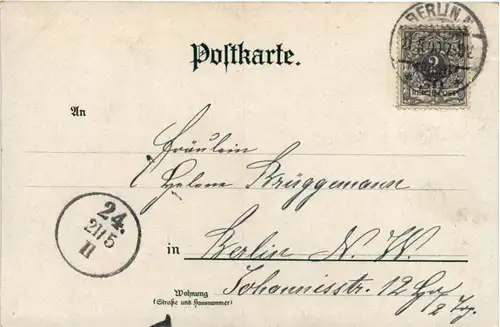 BERLIN
Postkarte.
3
An
Fräulein
Helene Brüggemann
in Berlin N. W.
Wohnung
(Straße und Hausnummer)
Johannisstr. 12
24.
21/5
II